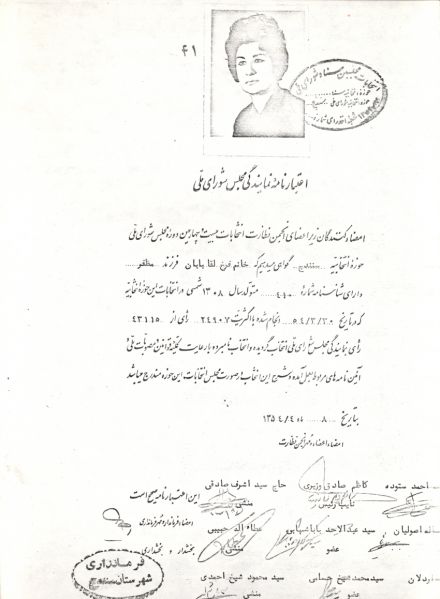 ۴۱
اعتبارنامهٔ نمایندگی مجلس شورای ملی
امضاء کنندگان زیر اعضای انجمن نظارت انتخابات بیست و چهارمین دوره مجلس شورای ملی
حوزهٔ انتخابیه سنندج گواهی میدهیم که خانم فرخ لقا بابان فرزند مظفر
دارای شناسنامه شمارهٔ ۴۱۰ متولد سال ۱۳۰۸ شمسی در انتخابات این حوزهٔ انتخابیه
که در تاریخ ۵۴/۳/۳۰ انجام شده با اکثریت ۲۴۹۰۷ رأی از ۴۳۱۱۵
رأی بنمایندگی مجلس شورای ملی انتخاب گردیده و انتخاب نامبرده با رعایت کلیه قوانین مصوبات ملی و
آئین نامه های مربوط بعمل آمده و شرح این انتخاب در صورت مجلس انتخابات این حوزه مندرج میباشد
بتاریخ ۸ /۴/ ۱۳۵۴
امضاء اعضاء و مهر انجمن نظارت
احمد ستوده کاظم صادقی وزیری حاج سید اشرف صادقی
نایب رئیس منشی
این اعتبارنامه صحیح است
امضاء فرماندار و مهر فرمانداری
اصولیان سید عبدالاحد باباشهابی عطاء اله حبیبی
عضو منشی
بخشدار و بخشداری
فرمانداری
شهرستان سنندج
سید محمد شیخ حسامی سید محمود شیخ احمدی
عضو منشی